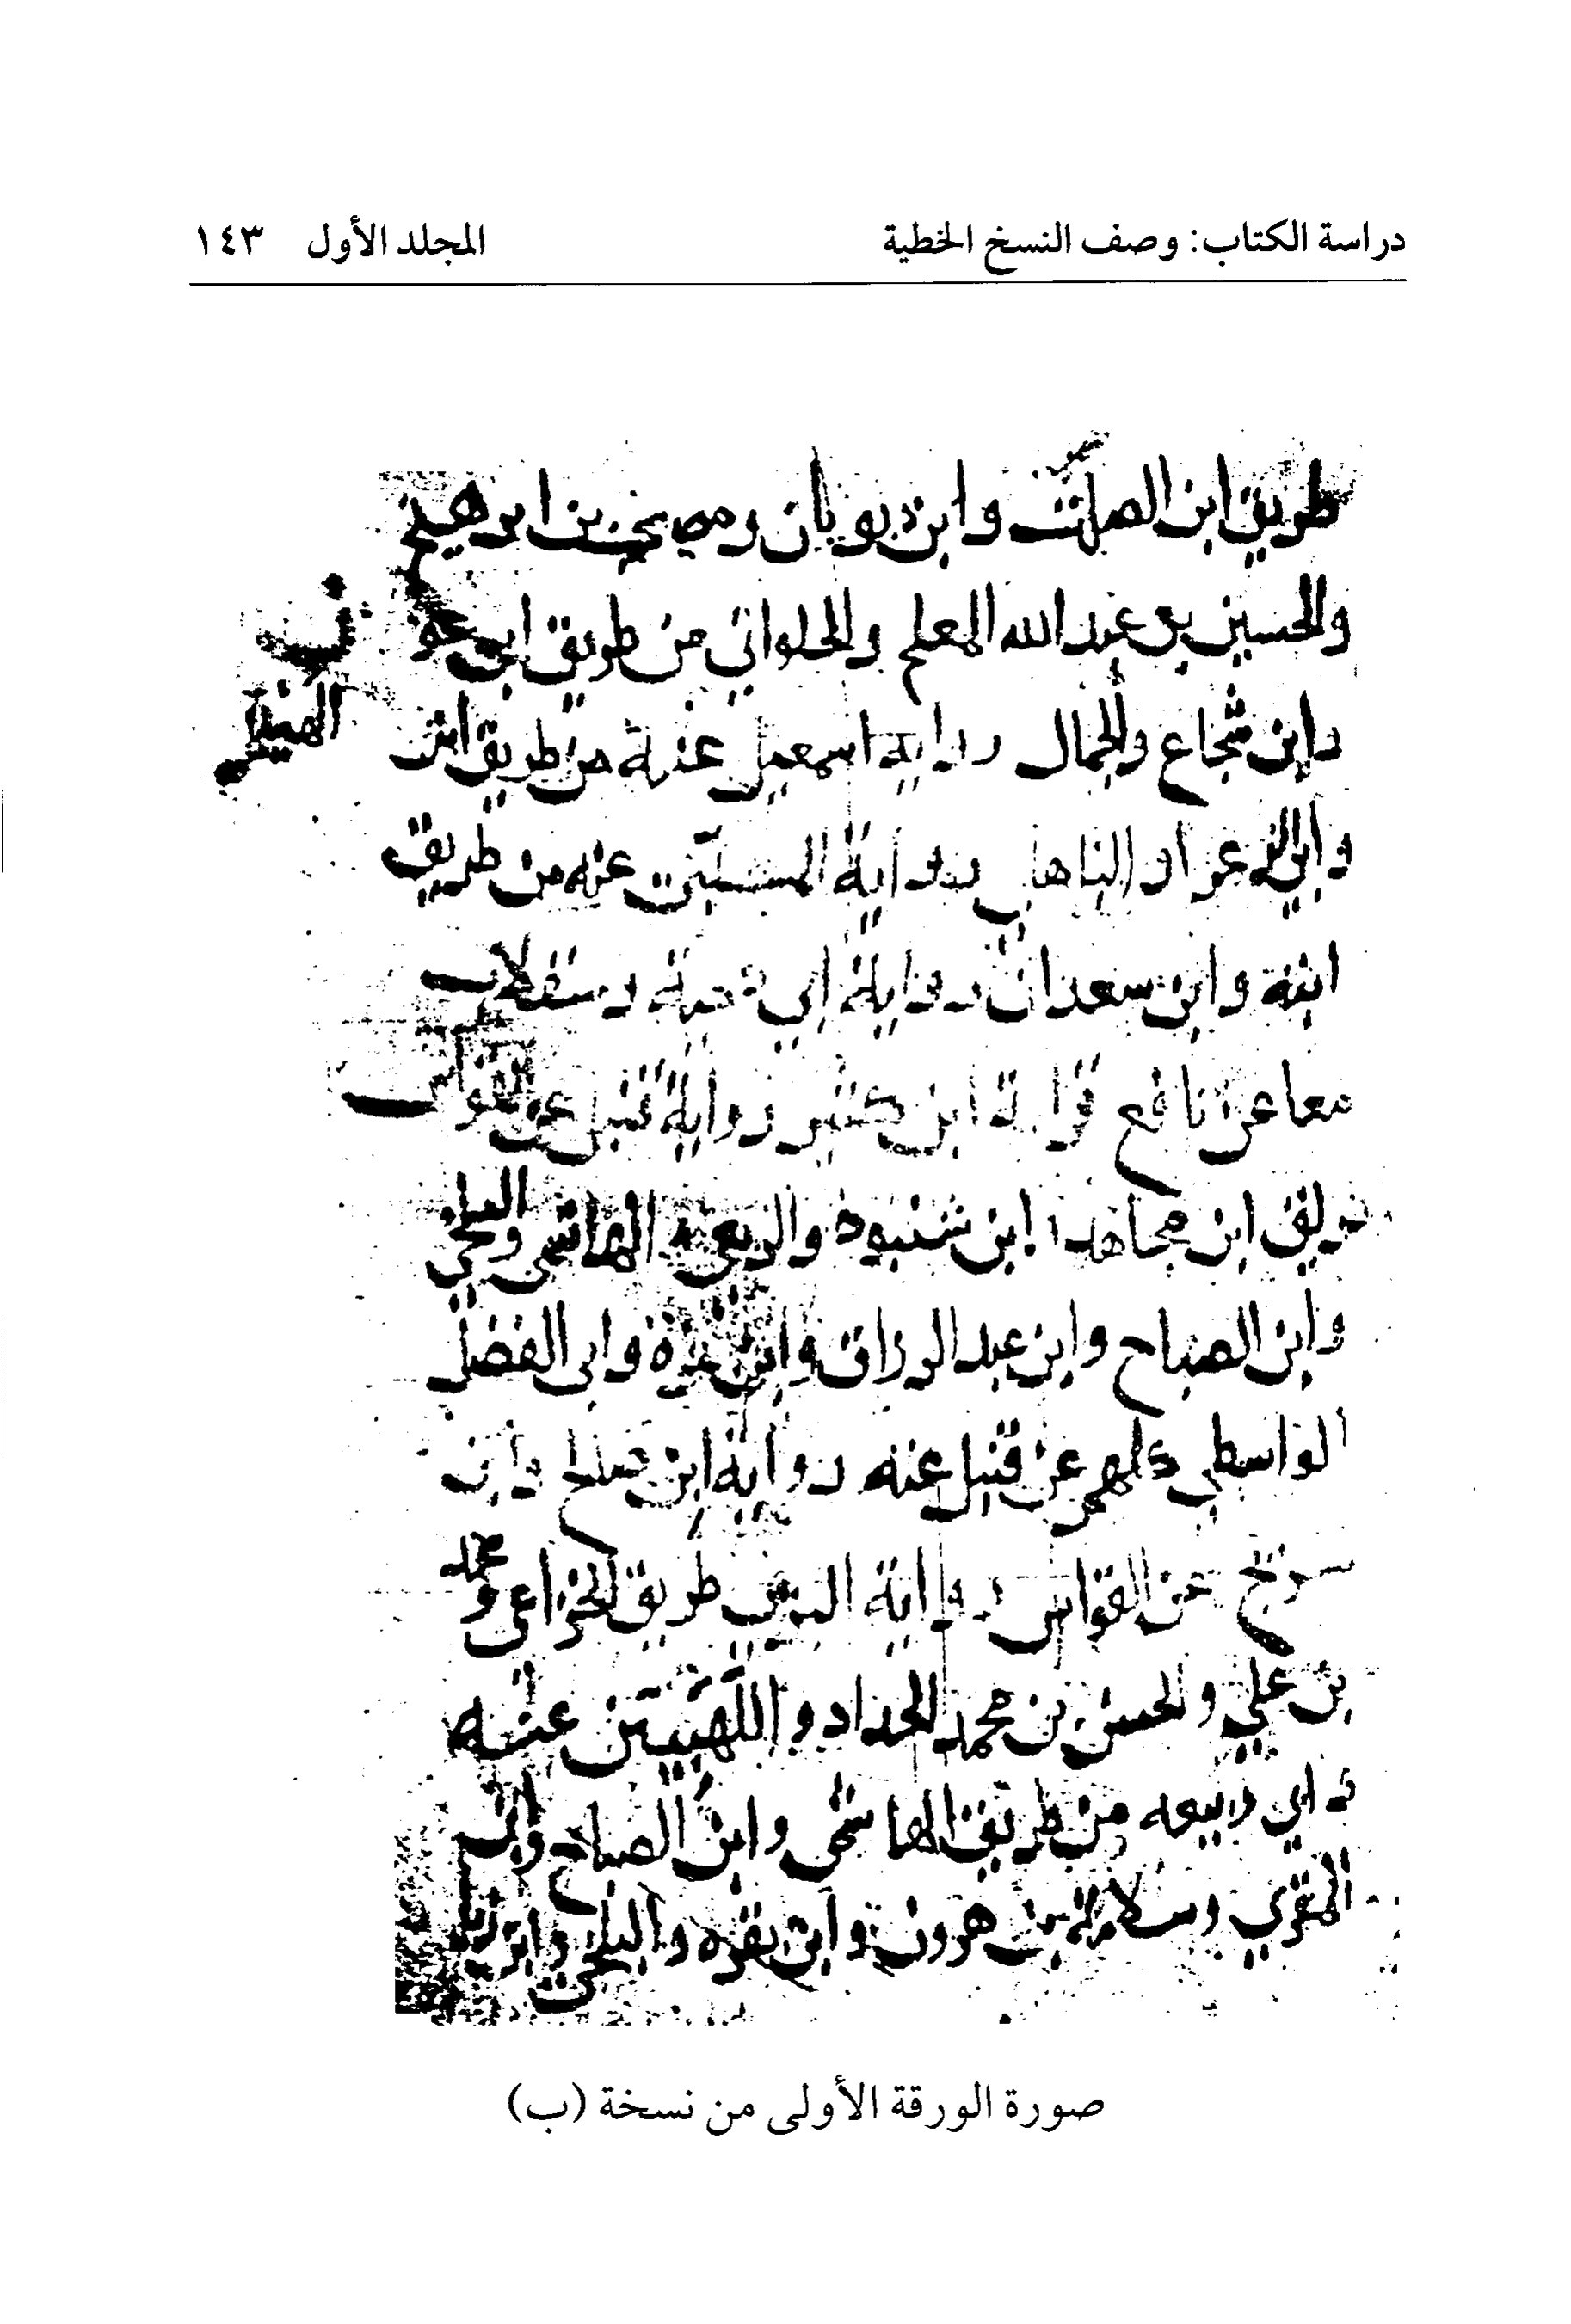 دراسة الكتاب: وصف النسخ الخطية المجلد الأول ١٤٣
طريق ابن الصلت وابن بويان ومصبح بن ابرهيم
والحسين بن عبد الله المعلم والحلواني من طريق ابي عون
وابن شجاع والجمال رواية اسمعيل عنه من طريق ابن
وابي الزعرا رواية المسيبي عنه من طريق
ابنه وابن سعدان رواية ابي وسقلاب
معا عن نافع قراة ابن كثير رواية قنبل عن القواس
طريق ابن مجاهد ابن شنبوذ والربعي الهاشمي والبلخي
وابن الصباح وابن عبد الرزاق وابن وابي الفضل
الواسطي كلهم عن قنبل عنه رواية ابن وابن
سريج عن القواس رواية البزي طريق الخزاعي ومحمد
بن علي والحسن بن محمد الحداد واللهبيين عنه
ابي ربيعه من طريق الهاشمي وابن الصباح وابن
المقري وسلامة بن هرون وابن بقره والبلخي وابن
صورة الورقة الأولى من نسخة (ب)